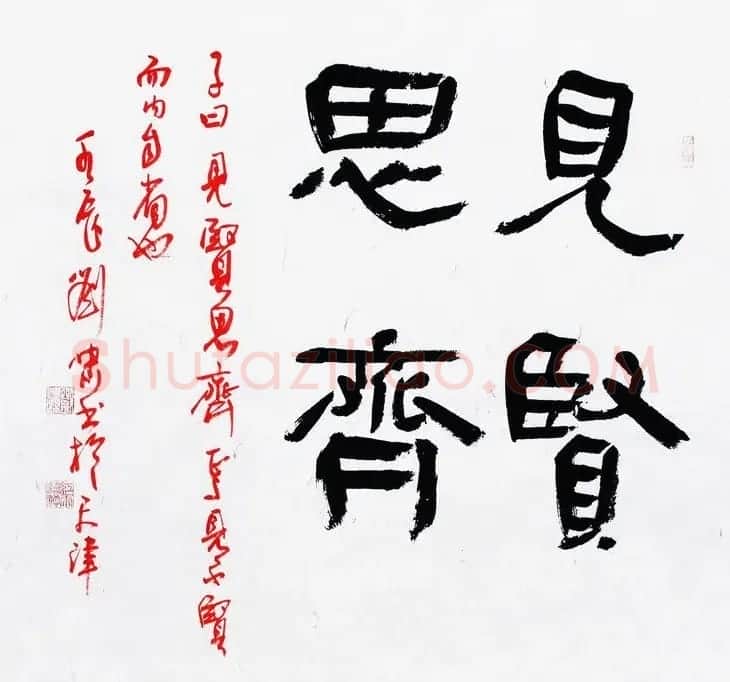 見賢
思齊
子曰見賢思齊焉見不賢
而內自省也
壬辰劉書於天津
Shufaziliao.COM